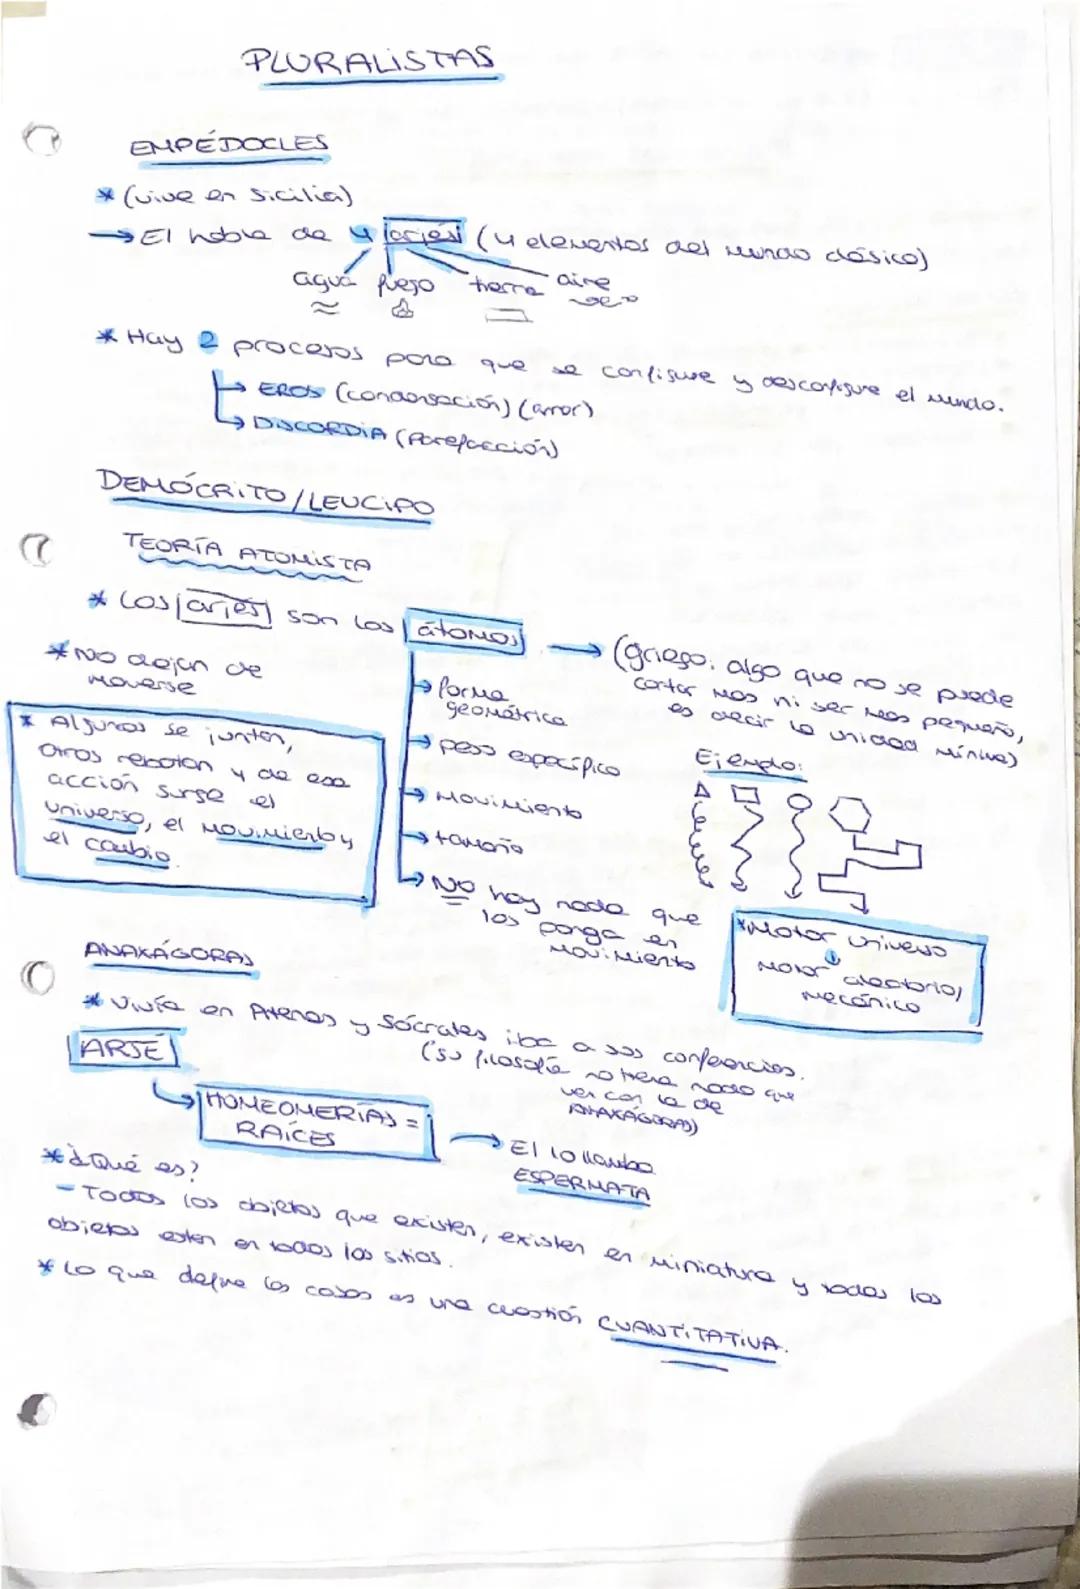 PLURALISTAS
EMPÉDOCLES
* (vive en Sicilia)
→ El habla de 4 arjés (4 elementos del mundo clásico)
agua fuego tierra aire
* Hay 2 procesos para que se configure y desconfigure el mundo.
→ EROS (condensación) (amor)
→ DISCORDIA (Rarefacción)
DEMÓCRITO/LEUCIPO
TEORÍA ATOMISTA
* Los arjés son los átomos → (griego: algo que no se puede
cortar mas ni ser mas pequeño,
es decir la unidad mínima)
* No dejan de
moverse
* Algunos se juntan,
otros rebotan y de esa
acción surge el
universo, el movimiento y
el cambio.
→ forma
geométrica
→ peso específico
→ Movimiento
→ tamaño
→ No hay nada que
los ponga en
movimiento
Ejemplo:
* Motor universo
Motor aleatorio/
mecánico
ANAXÁGORAS
* Vivía en Atenas y Sócrates iba a sus conferencias.
(su filosofía no tiene nada que
ver con la de
ANAXÁGORAS)
ARJÉ
HOMEOMERÍAS =
RAÍCES
→ El lo llamaba
ESPERMATA
* ¿Qué es?
- Todos los objetos que existen, existen en miniatura y todos los
objetos estan en todos los sitios.
* Lo que define las cosas es una cuestión CUANTITATIVA.